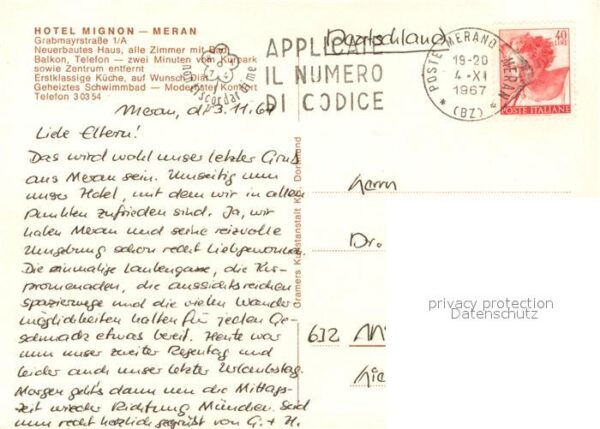 HOTEL MIGNON — MERAN
Grabmayrstraße 1/A
Neuerbautes Haus, alle Zimmer mit Bad
Balkon, Telefon — zwei Minuten vom Kurpark
sowie Zentrum entfernt
Erstklassige Küche, auf Wunsch Diät
Geheiztes Schwimmbad — Modernster Komfort
Telefon 3 03 54
non ti scordar di me
APPLICATE
IL NUMERO
DI CODICE
Deutschland
POSTE MERANO MERAN
19-20
4-XI
1967
* (BZ) *
40
LIRE
POSTE ITALIANE
Meran, d. 3.11.67
Liebe Eltern!
Das wird wohl unser letzter Gruß
aus Meran sein. Umseitig nun
unser Hotel, mit dem wir in allen
Punkten zufrieden sind. Ja, wir
haben Meran und seine reizvolle
Umgebung schon recht liebgewonnen.
Die einmalige Laubengasse, die Kur-
promenaden, die aussichtsreichen
Spazierwege und die vielen Wander
möglichkeiten halten für jeden Ge-
schmack etwas bereit. Heute war
nun unser zweiter Regentag und
leider auch unser letzter Urlaubstag.
Morgen geht's dann um die Mittags-
zeit wieder Richtung München. Seid
nun recht herzlich gegrüßt von G. + H.
Cramers Kunstanstalt KG, Dortmund
Herrn
Dr.
632
privacy protection
Datenschutz